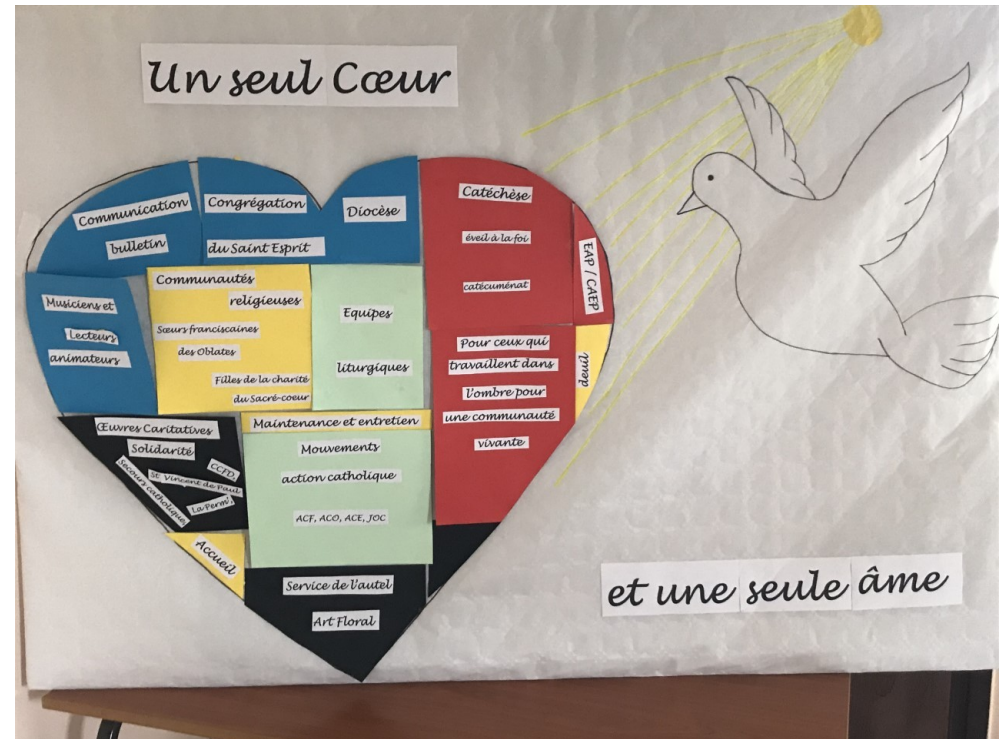 Un seul Cœur
Communication
bulletin
Congrégation
du Saint Esprit
Diocèse
Catéchèse
éveil à la foi
catécuménat
EAP / CAEP
Musiciens et
Lecteurs
animateurs
Communautés
religieuses
Sœurs franciscaines
des Oblates
Filles de la charité
du Sacré-coeur
Equipes
liturgiques
Pour ceux qui
travaillent dans
l'ombre pour
une communauté
vivante
deuil
Œuvres Caritatives
Solidarité
CCFD,
St Vincent de Paul
Secours catholique,
La Perm',
Maintenance et entretien
Mouvements
action catholique
ACF, ACO, ACE, JOC
Accueil
Service de l'autel
Art Floral
et une seule âme